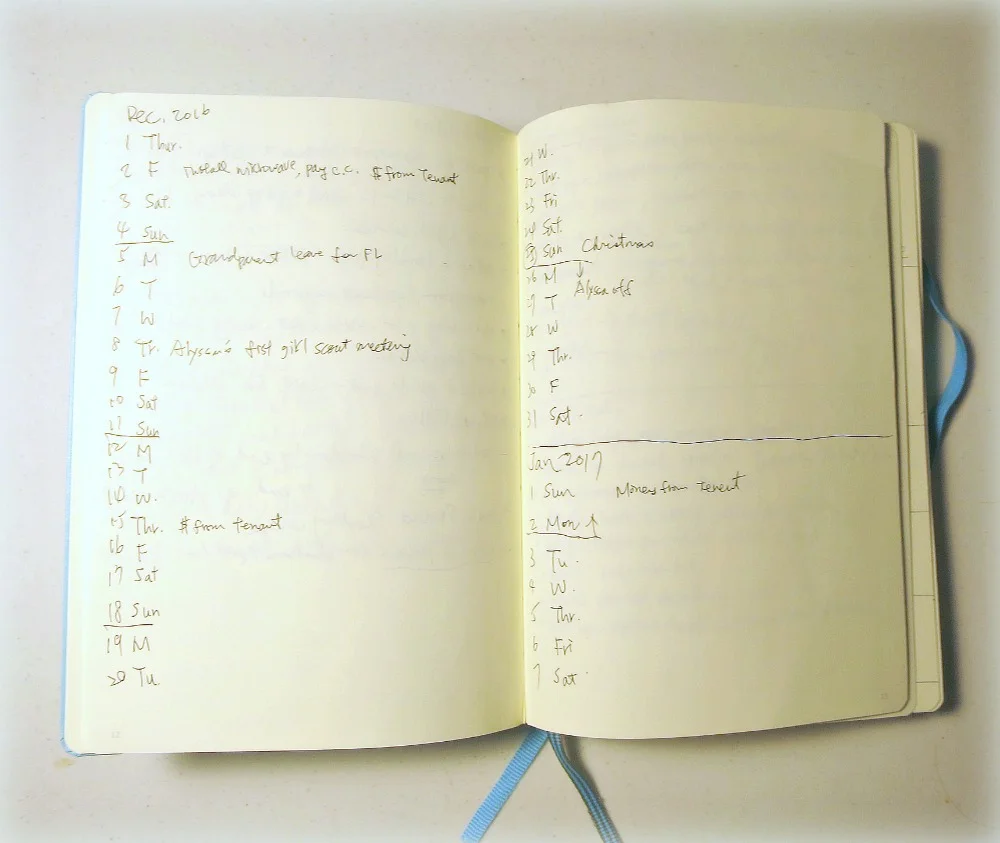 Dec. 2016
1 Thr.
2 F Install microwave, pay c.c. $ from tenant
3 Sat.
4 Sun
5 M Grandparent leave for FL
6 T
7 W
8 Tr. Alyssa's first girl scout meeting
9 F
10 Sat
11 Sun
12 M
13 T
14 W.
15 Thr. $ from tenant
16 F
17 Sat
18 Sun
19 M
20 Tu.
21 W.
22 Thr.
23 Fri
24 Sat.
25 Sun Christmas
26 M ↓
27 T Alyssa off
28 W
29 Thr.
30 F
31 Sat.
Jan 2017
1 Sun Money from tenent
2 Mon ↑
3 Tu.
4 W.
5 Thr.
6 Fri
7 Sat.